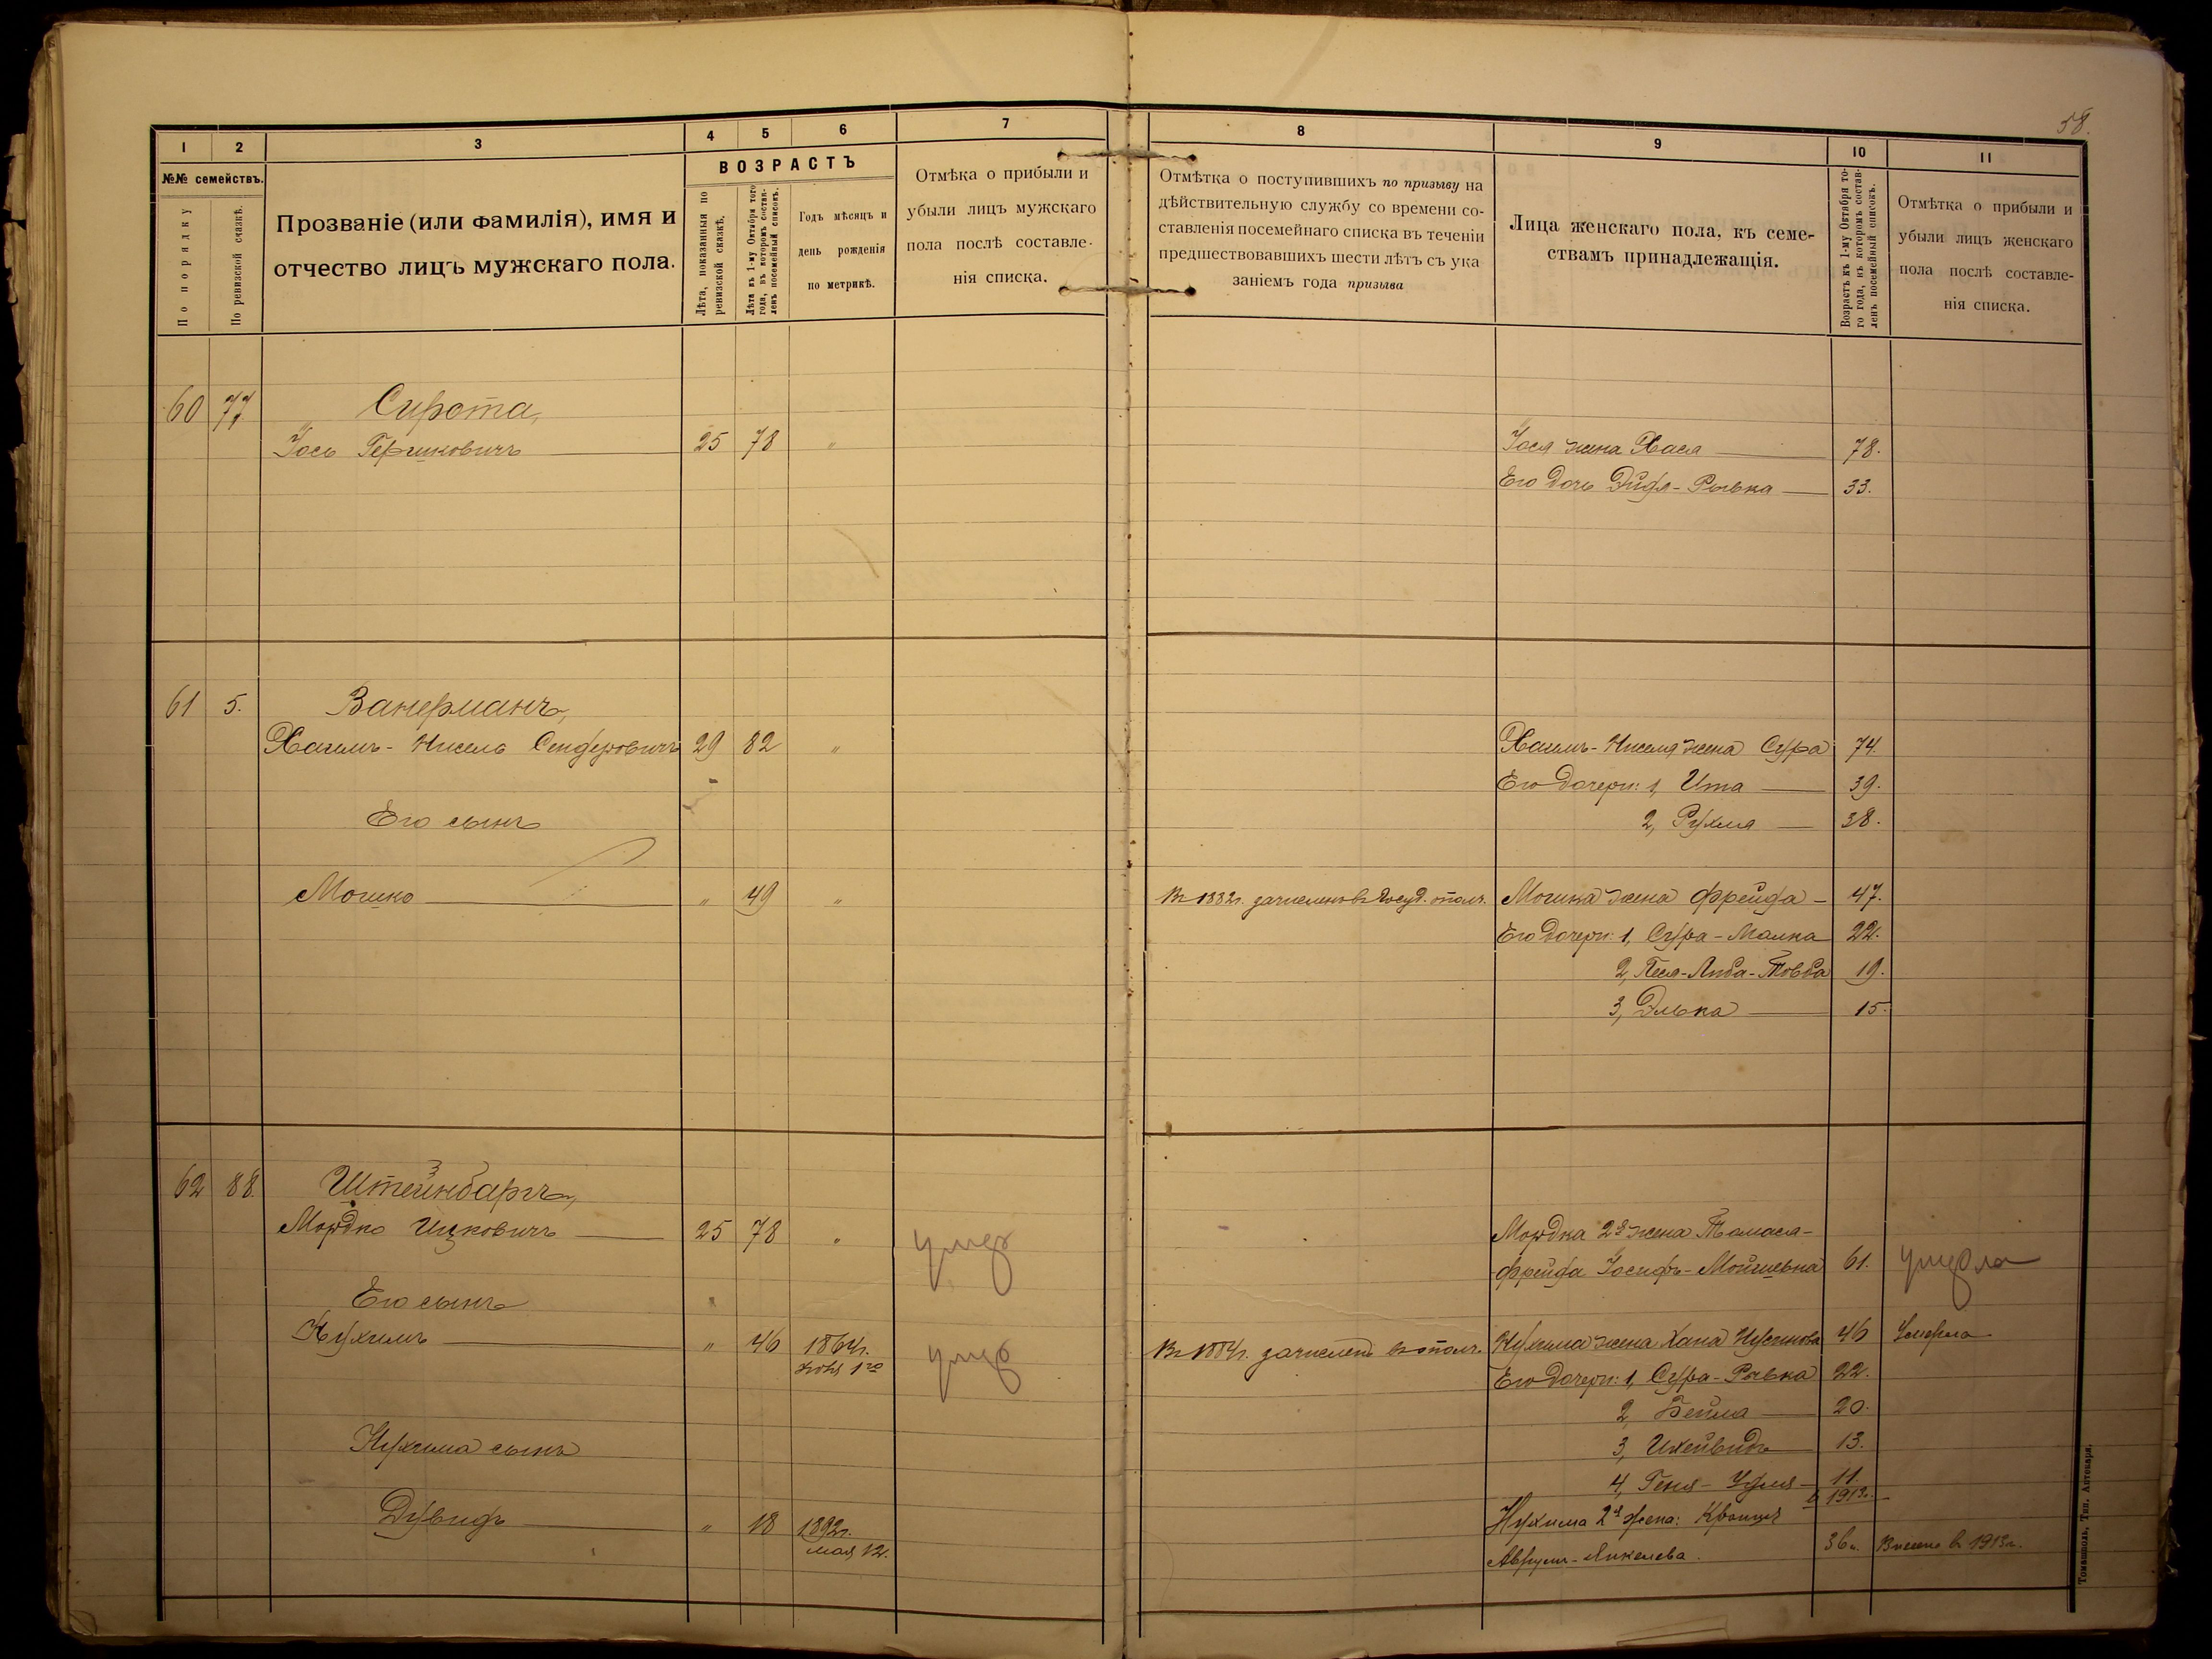 58.
1 2 3 4 5 6 7 8 9 10 11
№№ семействъ.
По порядку
По ревизской сказкѣ.
Прозваніе (или фамилія), имя и
отчество лицъ мужскаго пола.
ВОЗРАСТЪ
Лѣта, показанныя по
ревизской сказкѣ.
Лѣта къ 1-му Октября того
года, въ которомъ состав-
ленъ посемейный списокъ.
Годъ мѣсяцъ и
день рожденія
по метрикѣ.
Отмѣка о прибыли и
убыли лицъ мужскаго
пола послѣ составле-
нія списка.
Отмѣтка о поступившихъ по призыву на
дѣйствительную службу со времени со-
ставленія посемейнаго списка въ теченіи
предшествовавшихъ шести лѣтъ съ ука
заніемъ года призыва
Лица женскаго пола, къ семе-
ствамъ принадлежащія.
Возрастъ къ 1-му Октября то-
го года, въ которомъ состав-
ленъ посемейный списокъ.
Отмѣтка о прибыли и
убыли лицъ женскаго
пола послѣ составле-
нія списка.
60 77 Сирота,
Іось Гершковичъ 25 78 " Іося жена Хася 78.
Его дочь Эйдя-Рывка 33.
61 5. Ванерманъ,
Хаимъ-Нисель Сендеровичъ 29 82 " Хаимъ-Ниселя жена Сура 74.
Его дочери: 1, Ита 39.
Его сынъ 2, Рухля 38.
Мошко " 49 " Въ 1882г. зачисленъ въ Госуд. ополч. Мошка жена Фрейда 47.
Его дочери: 1, Сура-Малка 22.
2, Песя-Либа-Товба 19.
3, Элька 15.
62 88. Штейнбаргъ,
Мордко Ицковичъ 25 78 " умер Мордка 2я жена Томася-
Фрейда Іосифъ-Мойшевна 61. умерла
Его сынъ
Нухимъ " 46 1864г. умер Въ 1884г. зачисленъ въ ополч. Нухима жена Хана 46 Умерла
1го
Его дочери: 1, Сура-Рывка 22.
2, Бейла 20.
Нухима сынъ 3, Ихейвидъ 13.
4, Геня- 11.
в 1913г.
Дувидъ " 18 1892г. Нухима 2я жена:
мая 12. Аврум-Янкелева. 36 л. Внесена в 1913г.
Томашполь, Тип. Аптекаря.